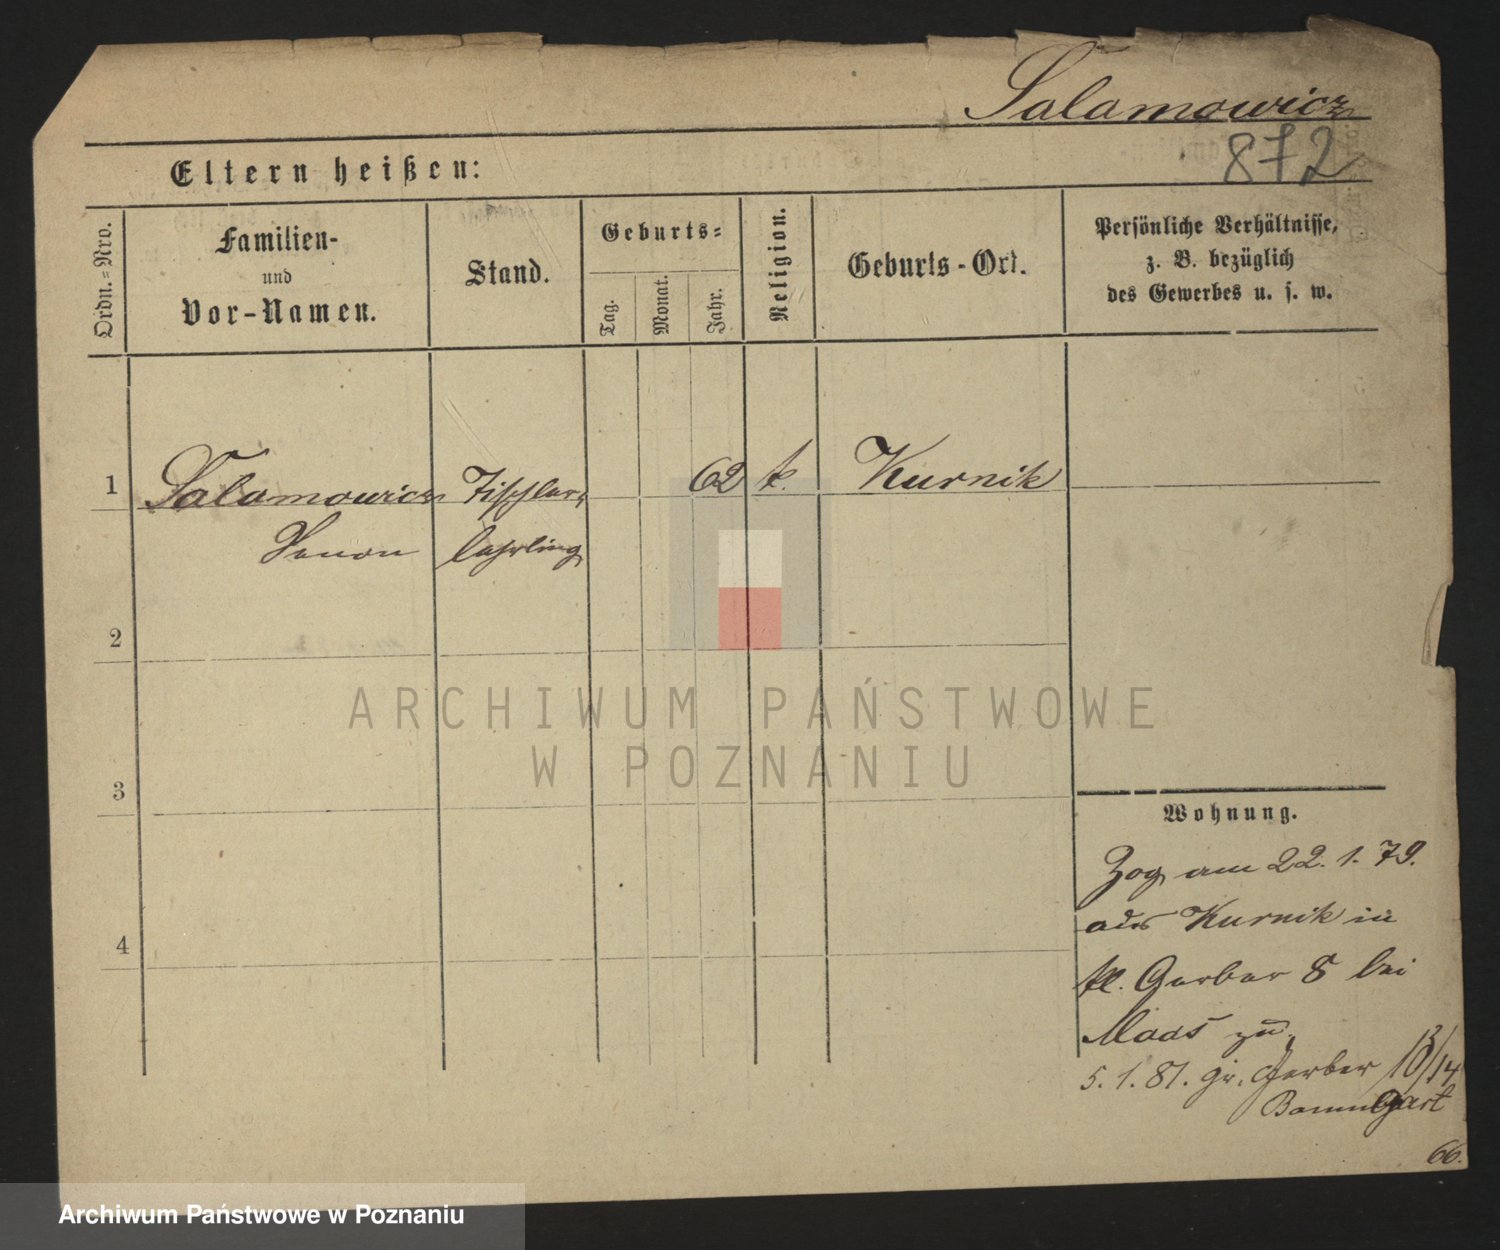 Salamowicz
872
Eltern heißen:
Ordn.=Nro.
Familien-
und
Vor-Namen.
Stand.
Geburts=
Tag.
Monat.
Jahr.
Religion.
Geburts-Ort.
Persönliche Verhältnisse,
z. B. bezüglich
des Gewerbes u. s. w.
1 Salamowicz Tischler- 62 k. Kurnik
Zenon lehrling
2
3
4
ARCHIWUM PAŃSTWOWE
W POZNANIU
Wohnung.
Zog am 22. 1. 79.
aus Kurnik in
kl. Gerber 8 bei
Maas zu
5. 1. 81. gr. Gerber 13/14
Baumgart
66.
Archiwum Państwowe w Poznaniu